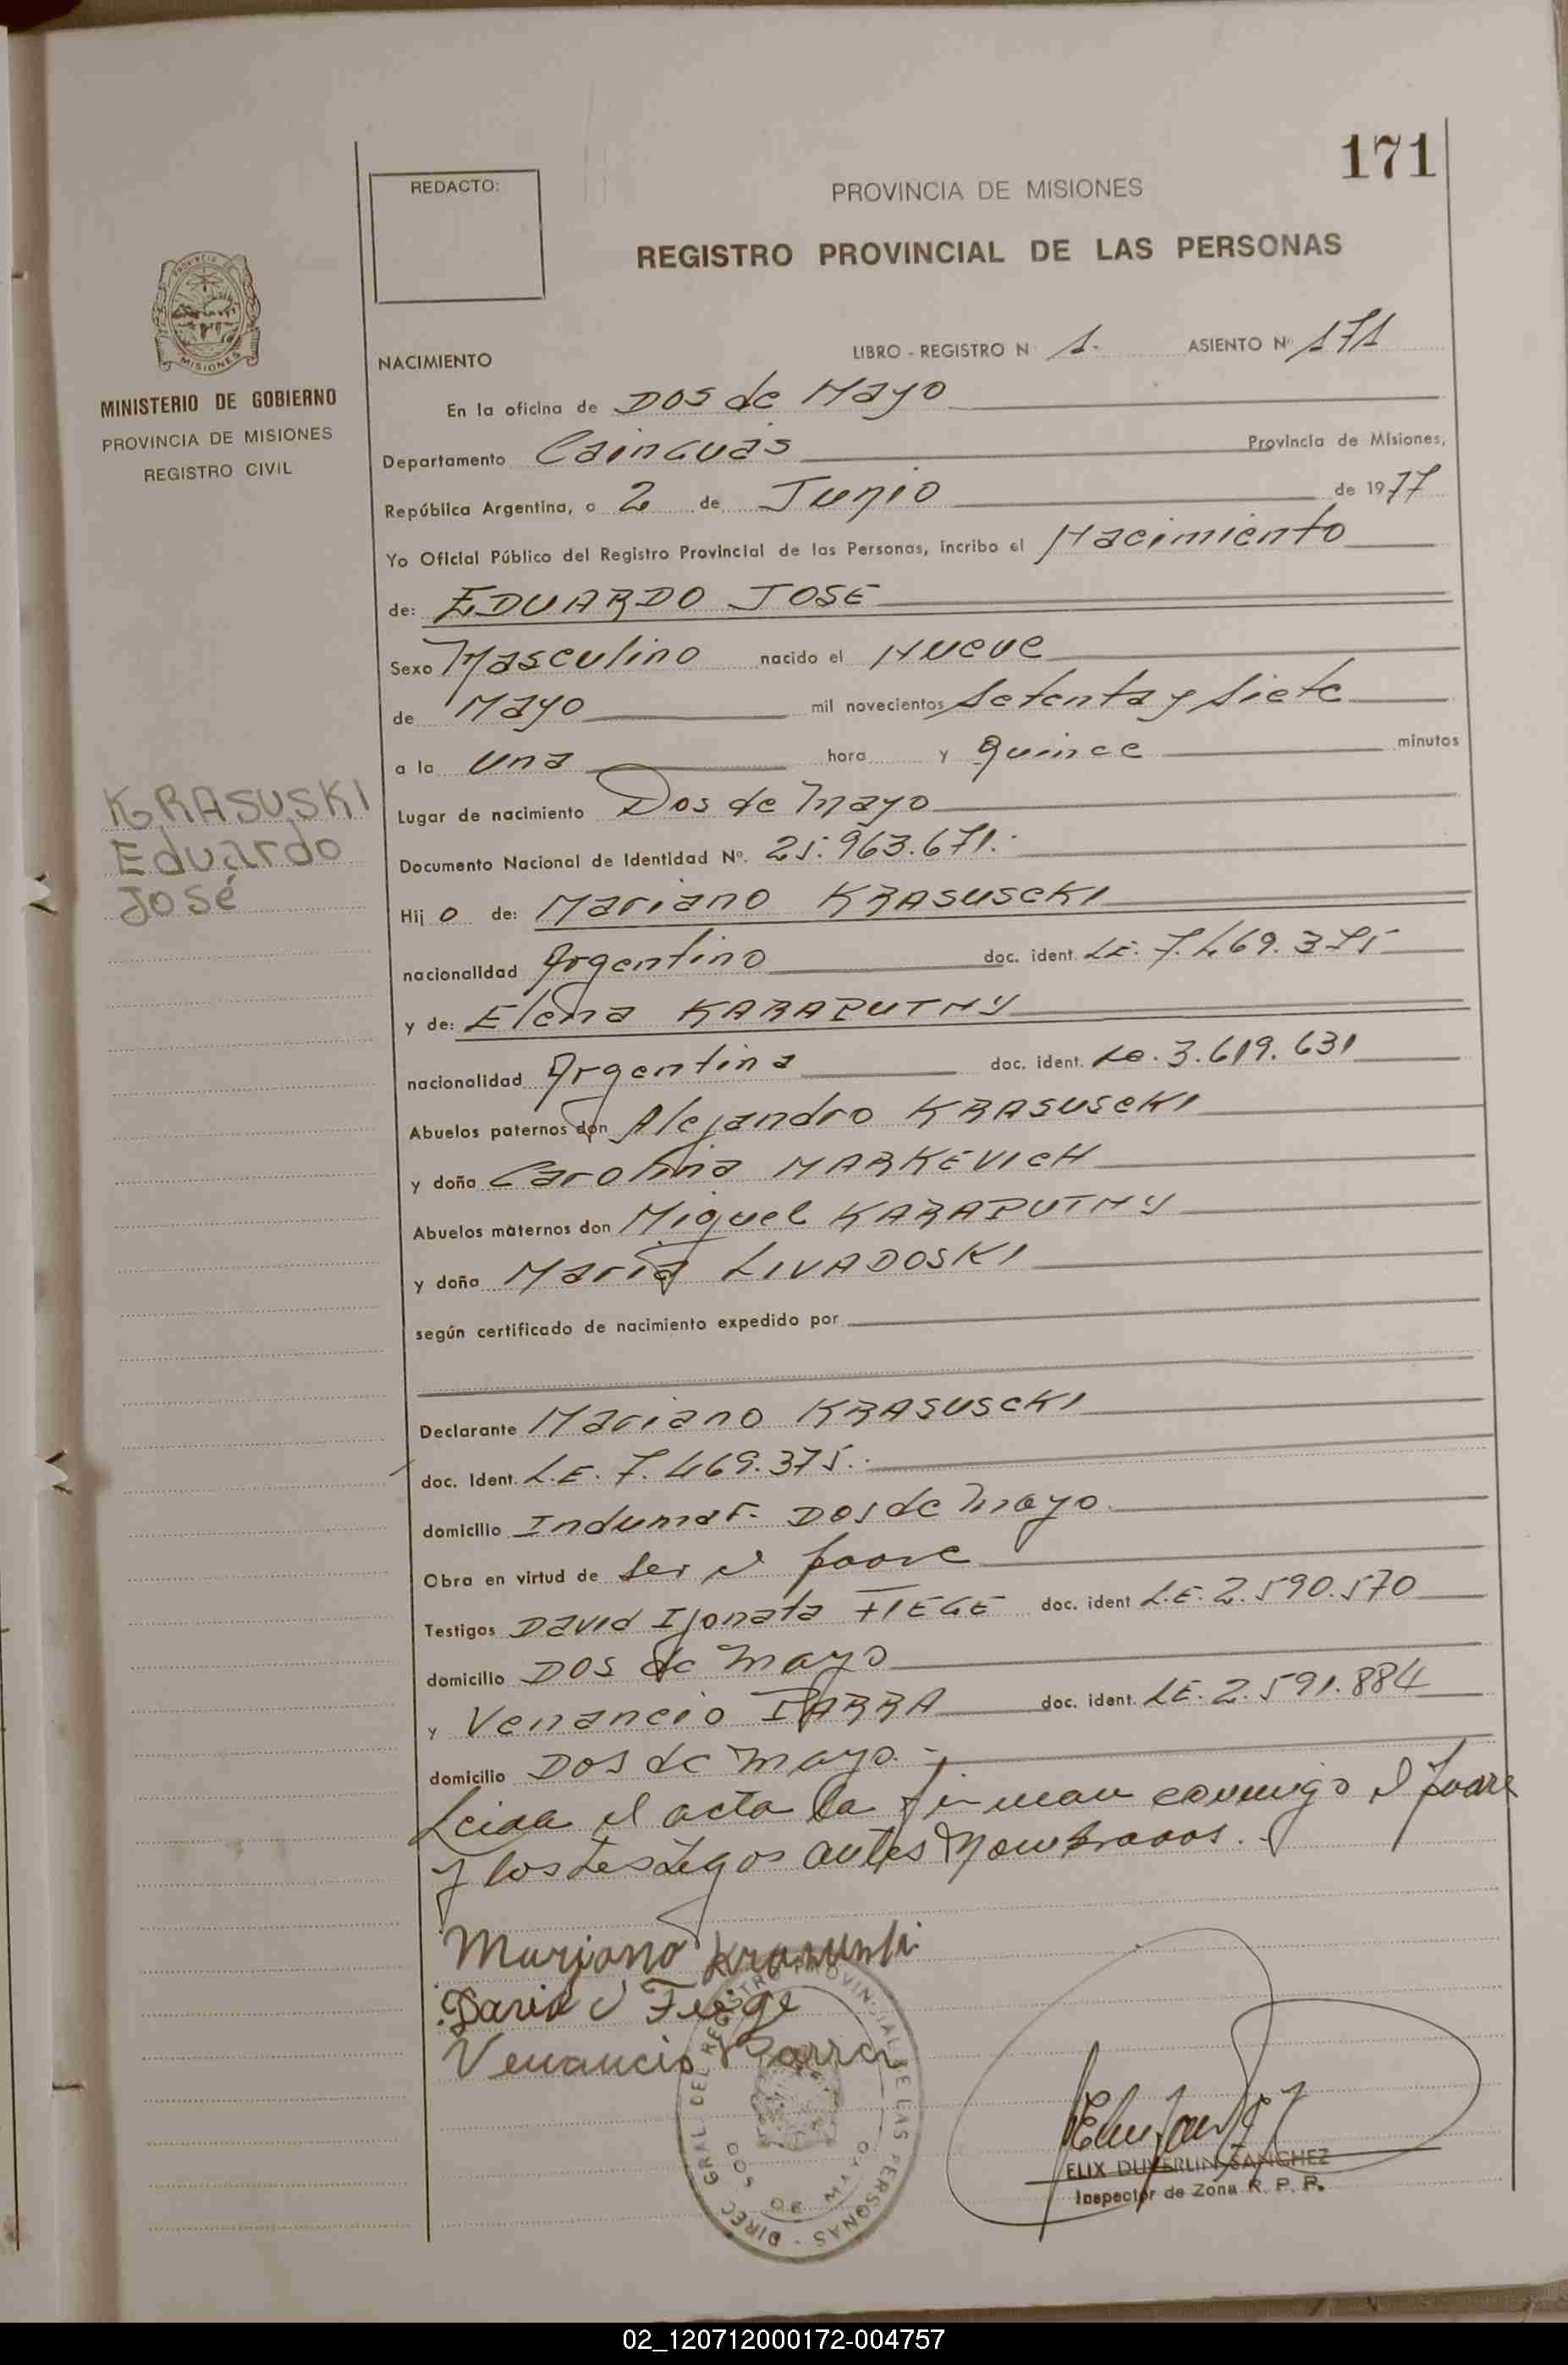 171
REDACTO:
PROVINCIA DE MISIONES
REGISTRO PROVINCIAL DE LAS PERSONAS
PROVINCIA DE
MISIONES
MINISTERIO DE GOBIERNO
PROVINCIA DE MISIONES
REGISTRO CIVIL
NACIMIENTO
LIBRO - REGISTRO N° 1.- ASIENTO N° 171
En la oficina de Dos de Mayo
Departamento Cainguás Provincia de Misiones,
República Argentina, a 2 de Junio de 1977
Yo Oficial Público del Registro Provincial de las Personas, incribo el Nacimiento
de: EDUARDO JOSE
Sexo Masculino nacido el Nueve
de Mayo mil novecientos Setenta y Siete
a la Una hora y quince minutos
Lugar de nacimiento Dos de Mayo
KRASUSKI
Eduardo
José
Documento Nacional de Identidad N°. 25.963.671.-
Hij o de: Mariano KRASUSCKI
nacionalidad Argentino doc. ident. L.E. 7.469.375
y de: Elena KARAPUTNY
nacionalidad Argentina doc. ident. Lc. 3.619.631
Abuelos paternos don Alejandro KRASUSCKI
y doña Carolina MARKEVICH
Abuelos maternos don Miguel KARAPUTNY
y doña Maria LIVADOSKI
según certificado de nacimiento expedido por
Declarante Mariano KRASUSCKI
doc. Ident. L.E. 7.469.375.-
domicilio Indumar- Dos de Mayo.
Obra en virtud de Ser el padre
Testigos David Ijonata FIEGE doc. ident L.E. 2.590.570
domicilio Dos de Mayo
y Venancio PARRA doc. ident. L.E. 2.591.884
domicilio Dos de Mayo.-
Leida el acta la firman conmigo el padre
y los testigos antes nombrados.-
Mariano Krasuski
David J Fiege
Venancio Parra
DIREC. GRAL. DEL REGISTRO PROVINCIAL DE LAS PERSONAS -
DOS DE MAYO
ELIX DUVERLIN SANCHEZ
Inspector de Zona R. P. P.
02_120712000172-004757